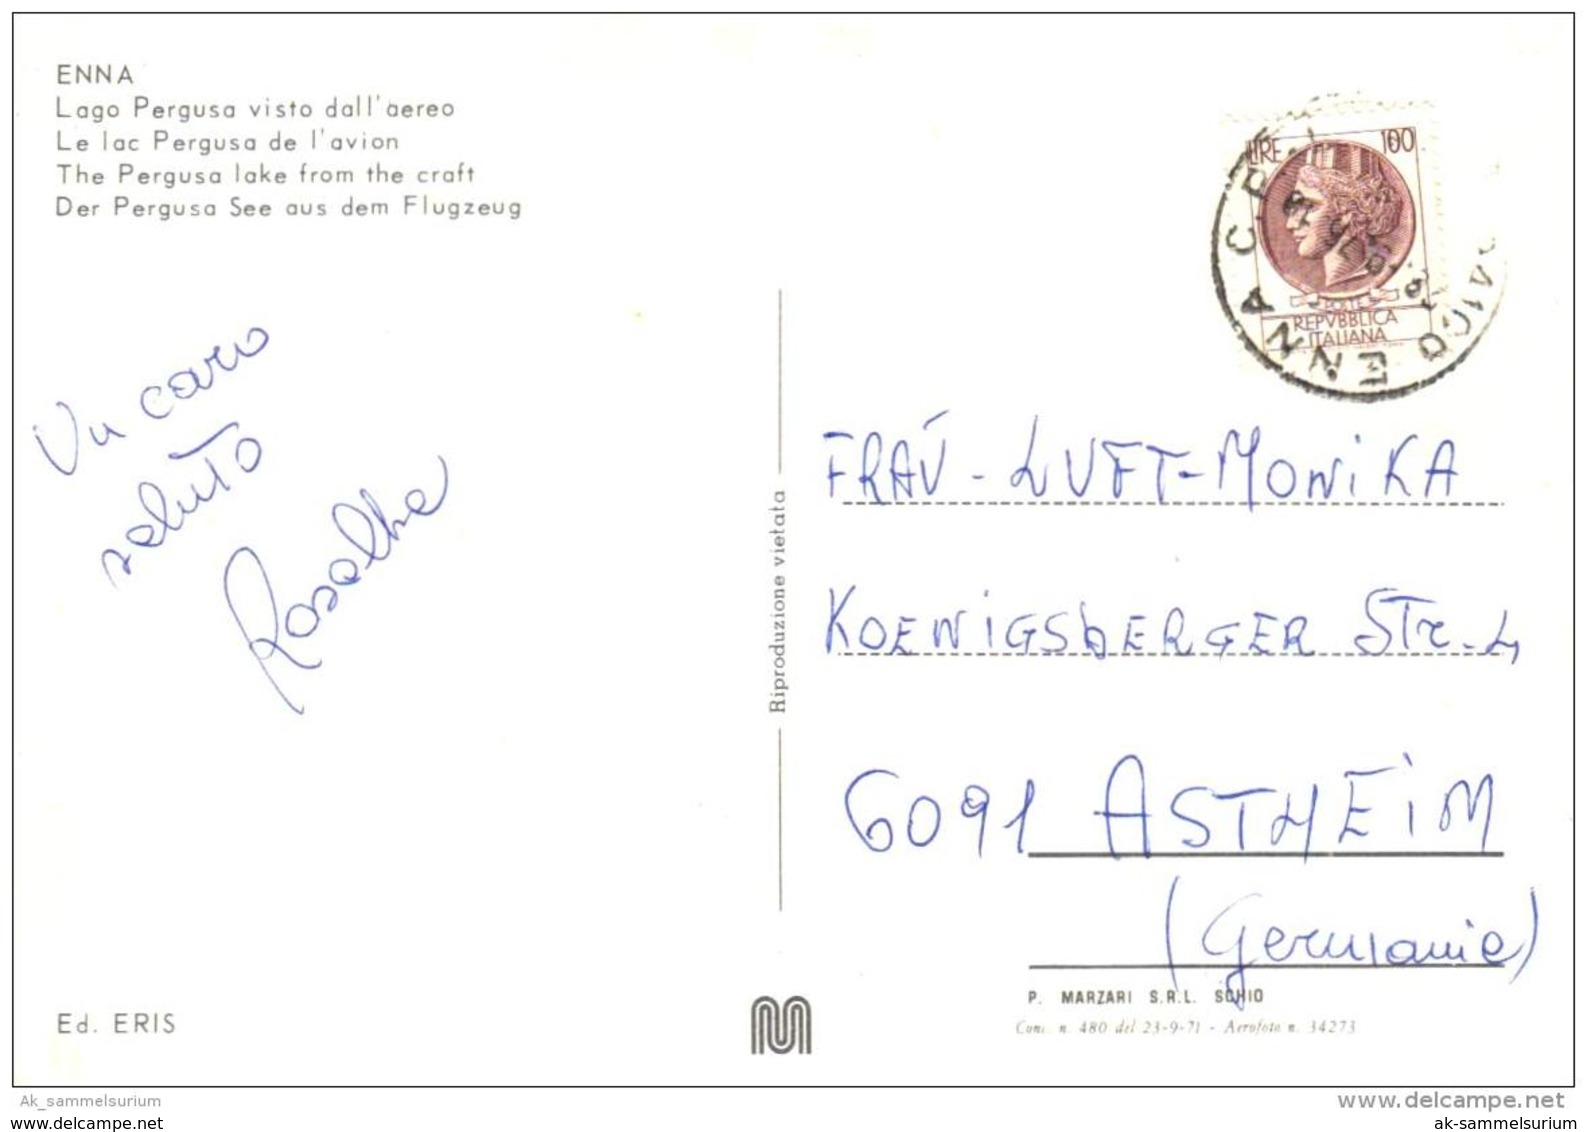 ENNA
Lago Pergusa visto dall'aereo
Le lac Pergusa de l'avion
The Pergusa lake from the craft
Der Pergusa See aus dem Flugzeug
Un caro
saluto
Rosalba
Ed. ERIS
Riproduzione vietata
LIRE 100
POSTE
REPVBBLICA
ITALIANA
ENNA C.P.
FRAÚ - LUFT - MONIKA
KOENIGSBERGER STr. 4
6091 ASTHEIM
(Germania)
P. MARZARI S.R.L. SCHIO
Conc. n. 480 del 23-9-71 - Aerofoto n. 34273
Ak_sammelsurium
www.delcampe.net
ak-sammelsurium
ak-sammelsurium